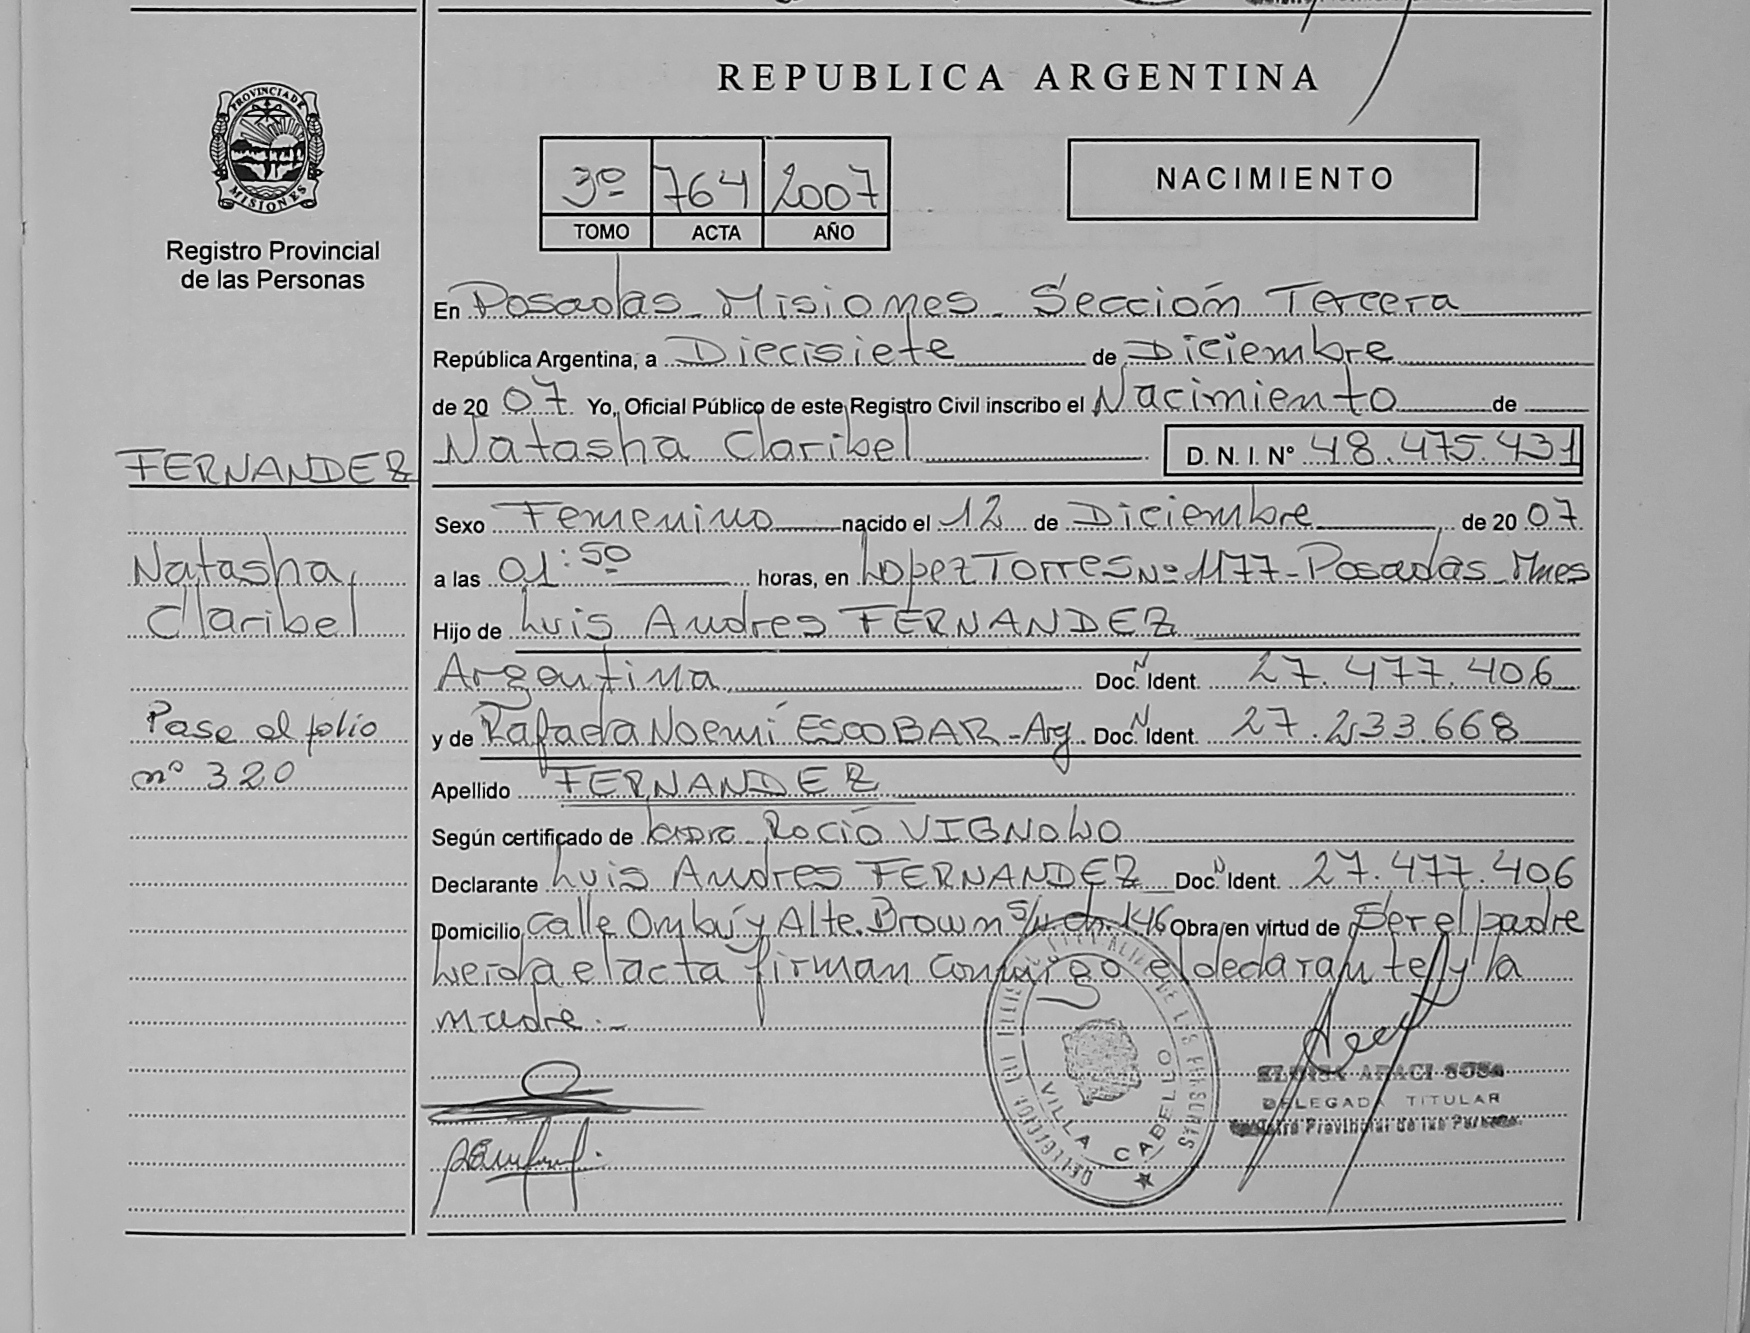 REPUBLICA ARGENTINA
PROVINCIA DE
MISIONES
Registro Provincial
de las Personas
3º 764 2007
TOMO ACTA AÑO
NACIMIENTO
En Posadas Misiones Sección Tercera
República Argentina, a Diecisiete de Diciembre
de 20 07 Yo, Oficial Público de este Registro Civil inscribo el Nacimiento de
Natasha Claribel D. N. I. Nº 48.475.431
FERNANDEZ
Natasha
Claribel
Pase al folio
nº 320
Sexo Femenino nacido el 12 de Diciembre de 20 07
a las 01:50 horas, en Lopez Torres Nº 1177 - Posadas Mnes
Hijo de Luis Andres FERNANDEZ
Argentina Doc. N Ident. 27.477.406
y de Noemí ESCOBAR - Arg Doc. N Ident. 27.233.668
Apellido FERNANDEZ
Según certificado de Rocío VIGNOLO
Declarante Luis Andres FERNANDEZ Doc. N Ident. 27.477.406
Domicilio Calle Ombú y Alte. Brown S/N ch. 146 Obra en virtud de Ser el padre
Leida el acta firman conmigo el declarante y la
madre.-
VILLA CABELLO
ELOISA ARACI SOSA
DELEGADA TITULAR
Registro Provincial de las Personas